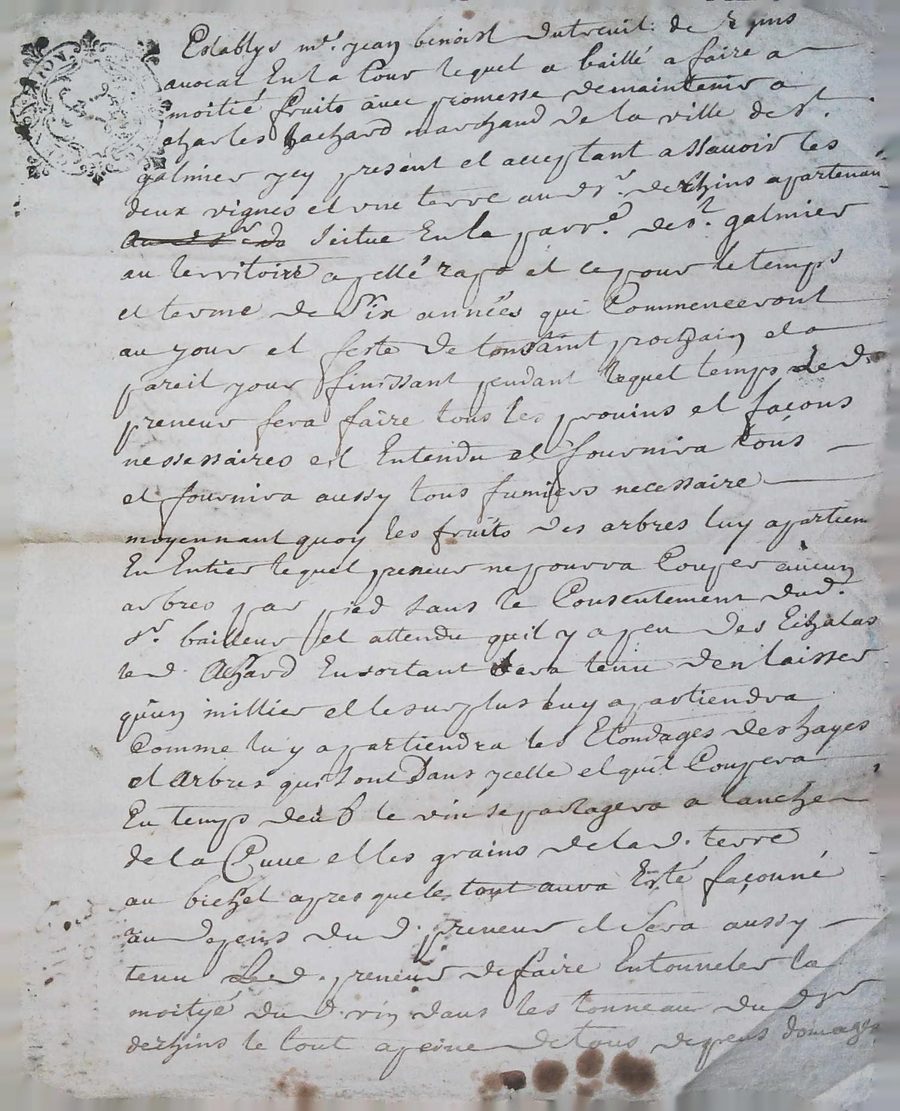 Establys mr. jean benoist dutreuil de
avocat En la Cour lequel a baillé a faire a
moitié fruits avec promesse de maintenir a
Charles Hachard marchand de la ville de st.
galmier ycy present et acceptant assavoir les
deux vignes et une terre aud. sr. de Rhins apartenan
Scitue En la parr.e de st. galmier
au Territoire apellé et ce pour le temps
et terme de Six années qui Commenceront
au jour et feste de toussaint prochain et a
pareil jour finissant pendant lequel temps led.
preneur fera faire tous les prouins et façons
nessessaires et Entendu et fournira tous
et fournira aussy tous fumiers necessaire
moyennant quoy les fruits des arbres luy apartien
En Entier lequel preneur ne pourra Couper aucun
arbres par pied sans le Consentement dud.
sr. bailleur et attendu quil y a peu des Echalas
led. Achard En sortant sera tenu den laisser
qu'un millier et le surplus luy apartiendra
Comme luy apartiendra les Etondages des hayes
et Arbres qui sont Dans ycelle et quil Coupera
En temps le vin se partagera a lanche
de la Cuue et les grains de lad. terre
au bichet apres que le tout aura Esté façonné
au depens dud. preneur et Sera aussy
tenu Led. preneur de faire Entonneler la
moityé dud. vin dans les tonneau dud. sr
derhins le tout a peine de tous depens domages